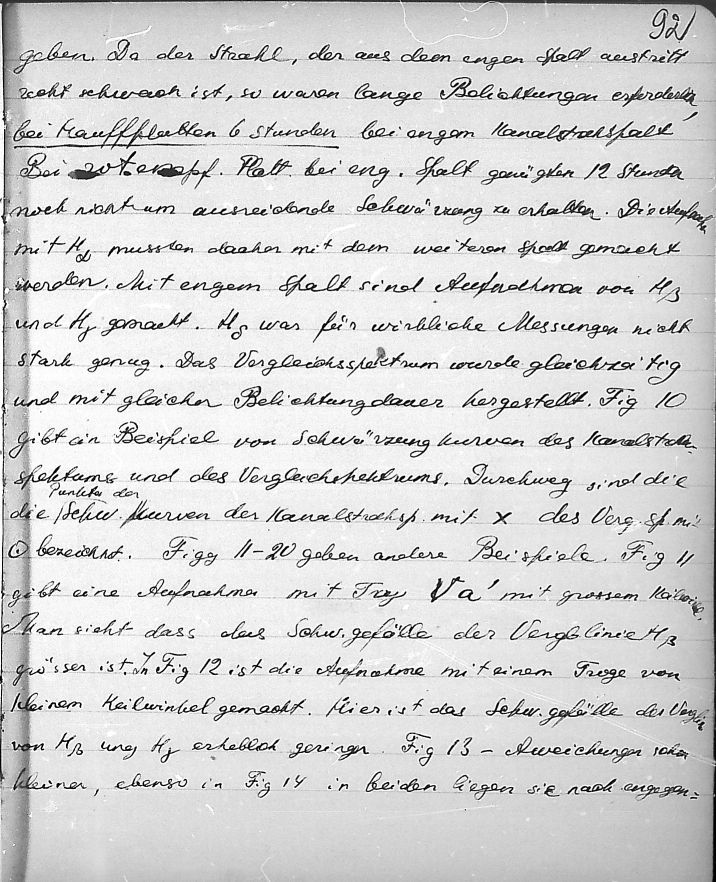 92
geben. Da der Strahl, der aus dem engen Spalt austritt
recht schwach ist, so waren lange Belichtungen erforderlich,
bei Hauffplatten 6 Stunden bei engem Kanalstrahlspalt
Bei rotempf. Platt. bei eng. Spalt genügten 12 Stunden
noch nicht um ausreichende Schwärzung zu erhalten. Die Aufnahm
mit Hα mussten daher mit dem weiteren Spalt gemacht
werden. Mit engem Spalt sind Aufnahmen von Hβ
und Hγ gemacht. Hδ war für wirkliche Messungen nicht
stark genug. Das Vergleichsspektrum wurde gleichzeitig
und mit gleicher Belichtungdauer hergestellt. Fig 10
gibt ein Beispiel von Schwärzungkurven des Kanalstrahl-
spektums und des Vergleichspektrums. Durchweg sind die
Punkte der
die Schw. Kurven der Kanalstrahlsp. mit x des Verg. sp. mit
⊙ bezeichnet. Figg 11-20 geben andere Beispiele. Fig 11
gibt eine Aufnahme mit Trog Va' mit grossem
Man sieht dass das Schw.gefälle der Verglinie Hβ
grösser ist. In Fig 12 ist die Aufnahme mit einem Troge von
kleinem Keilwinkel gemacht. Hier ist das Schw.gefälle der
von Hβ und Hγ erheblich geringer. Fig 13 - Abweichungen schon
kleiner, ebenso in Fig 14 in beiden liegen sie nach engegen=